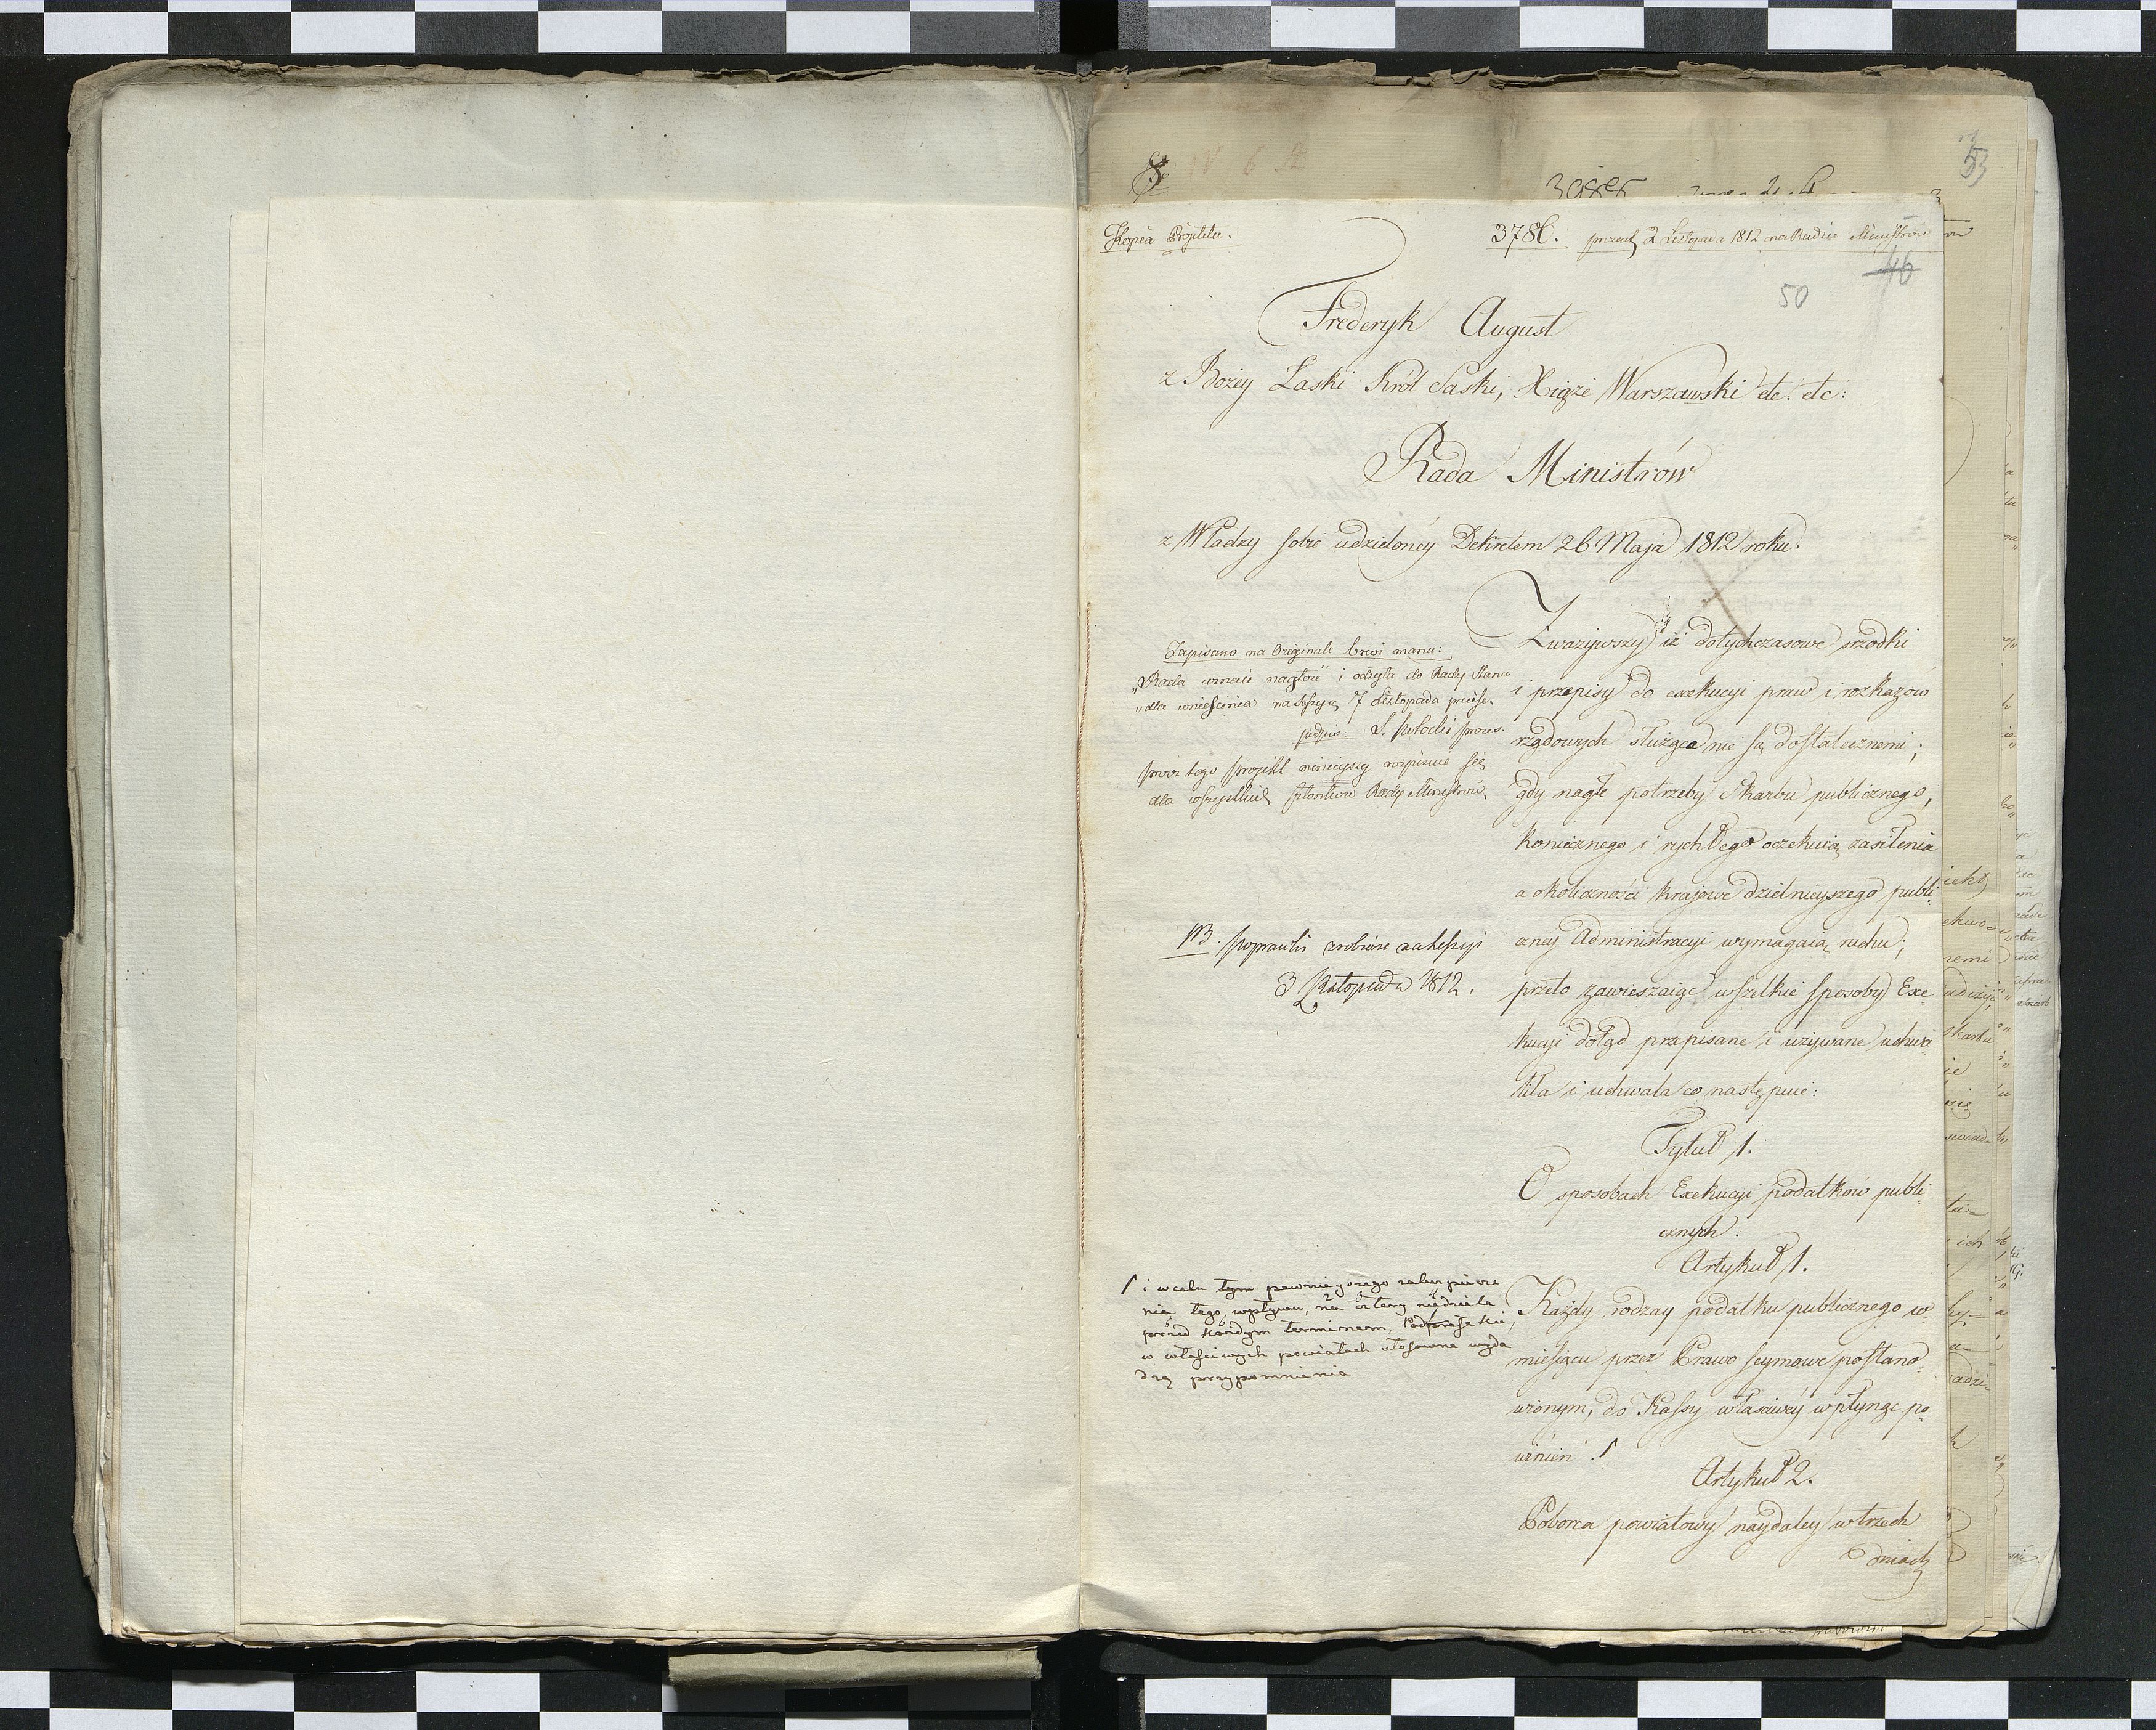 Kopia Projektu.
3786. przed 2 Listopada 1812 na Radzie Ministrów
46
50
53
Frederyk August
z Bożey Łaski Król Saski, Xiąże Warszawski etc. etc:
Rada Ministrów
z Władzy sobie udzieloney Dekretem 26 Maja 1812 roku.
Zważywszy iż dotychczasowe srzodki
i przepisy do exekucyi praw i rozkazów
rządowych służące nie są dostatecznemi;
gdy nagłe potrzeby Skarbu publicznego,
koniecznego i rychłego oczekuią zasilenia
a okoliczności krajowe dzielnieyszego publi-
czney Administracyi wymagaią ruchu;
przeto zawieszaiąc wszelkie sposoby Exe-
kucyi dotąd przepisane i używane uchwa
liła i uchwala co następuie:
Tytuł 1.
O sposobach Exekucyi podatków publi-
cznych.
Artykuł 1.
Każdy rodzay podatku publicznego w
miesiącu przez Prawo seymowe postano-
wionym, do Kassy właściwey wpłynąć po-
winien.
Artykuł 2.
Poborca powiatowy naydaley w trzech
dniach
Zapisano na Originale brevi manu:
„Rada uznaie nagłość i odsyła do Rady Stanu
„dla wniesienia na Sessyę 7 Listopada
podpis: S. Potocki prezes.
prócz tego projekt ninieyszy rozpisuie się
dla wszystkich członków Rady Ministrów
NB. poprawki zrobione na Sessyi
3 Listopada 1812.
i w celu tym pewnieyszego zabezpiecze
nia tego wpływu, na cztery niedziele
przed każdym terminem, Podprefekci,
w właściwych powiatach stosowne wyda
dzą przypomnienia